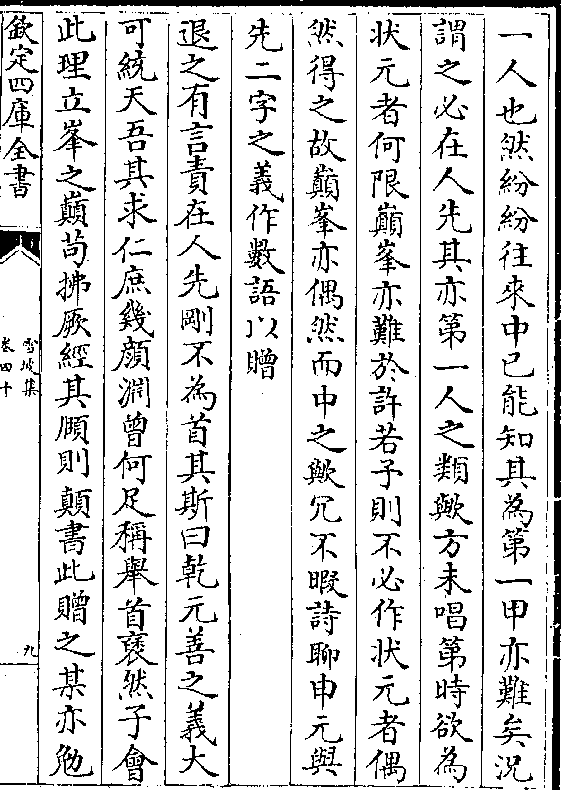 一人也然紛紛往來中已能知其為第一甲亦難矣況
謂之必在人先其亦第一人之類歟方未唱第時欲為
狀元者何限巔峯亦難於許若予則不必作狀元者偶
然得之故巔峯亦偶然而中之歟冗不暇詩聊申元與
先二字之義作數語以贈
退之有言責在人先剛不為首其斯曰乾元善之義大
可統天吾其求仁庶幾顔淵曾何足稱舉首裒然子會
此理立峯之巔茍拂厥經其頤則顛書此贈之某亦勉
欽定四庫全書
雪坡集
卷四十
九